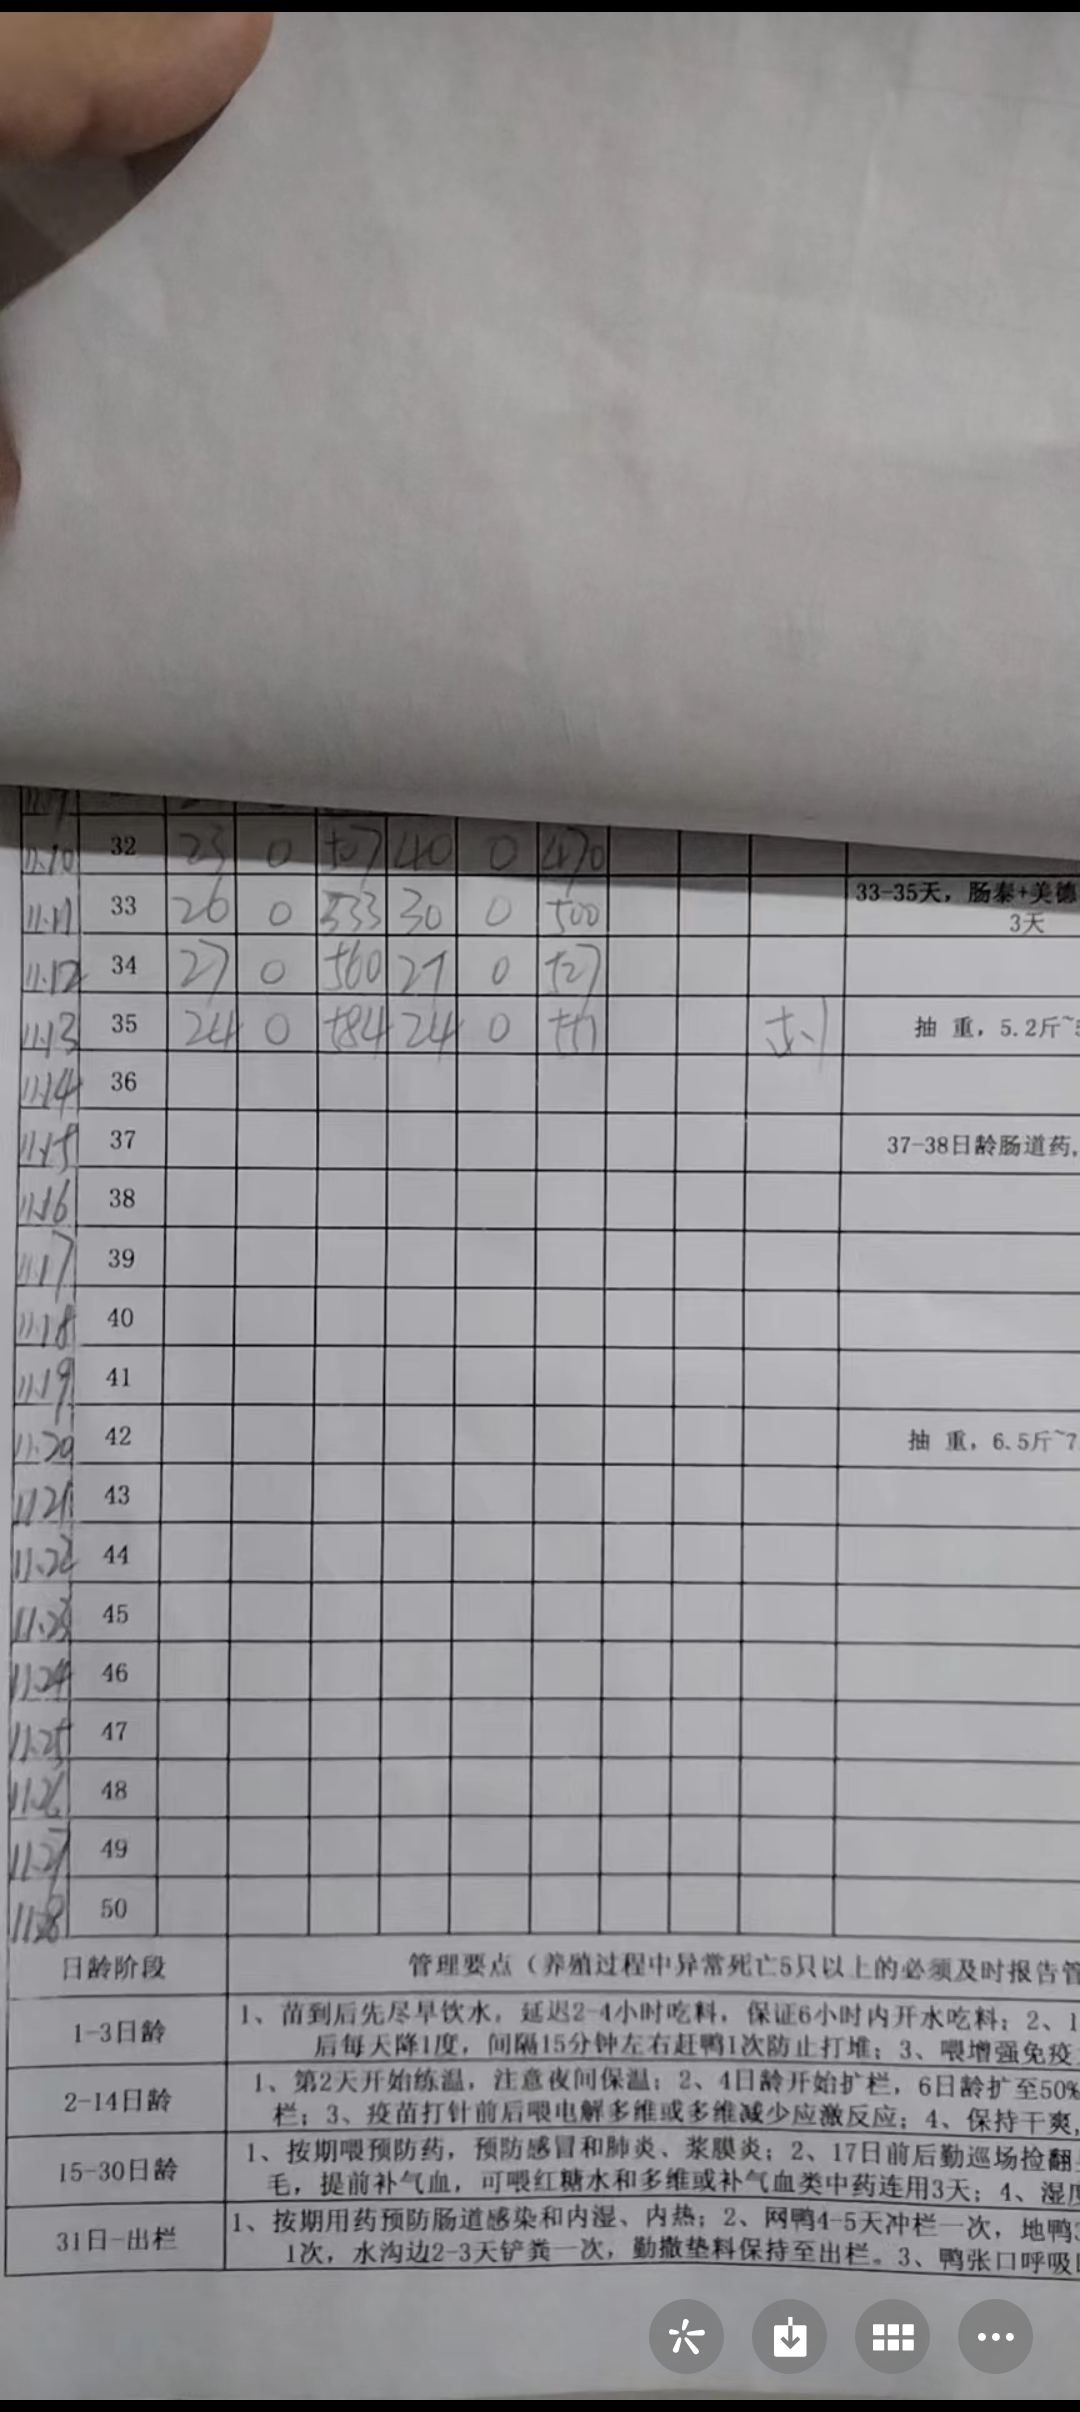 11.9
11.10 32 23 0 507 40 0 470
11.11 33 26 0 533 30 0 500 33-35天，肠泰+美德
3天
11.12 34 27 0 560 27 0 527
11.13 35 24 0 584 24 0 551 5.1 抽 重，5.2斤~5
11.14 36
11.15 37 37-38日龄肠道药，
11.16 38
11.17 39
11.18 40
11.19 41
11.20 42 抽 重，6.5斤~7
11.21 43
11.22 44
11.23 45
11.24 46
11.25 47
11.26 48
11.27 49
11.28 50
日龄阶段 管理要点（养殖过程中异常死亡5只以上的必须及时报告管
1-3日龄 1、苗到后先尽早饮水，延迟2-4小时吃料，保证6小时内开水吃料；2、1
后每天降1度，间隔15分钟左右赶鸭1次防止打堆；3、喂增强免疫
2-14日龄 1、第2天开始练温，注意夜间保温；2、4日龄开始扩栏，6日龄扩至50%
栏；3、疫苗打针前后喂电解多维或多维减少应激反应；4、保持干爽，
15-30日龄 1、按期喂预防药，预防感冒和肺炎、浆膜炎；2、17日前后勤巡场捡翻
毛，提前补气血，可喂红糖水和多维或补气血类中药连用3天；4、湿度
31日-出栏 1、按期用药预防肠道感染和内湿、内热；2、网鸭4-5天冲栏一次，地鸭3
1次，水沟边2-3天铲粪一次，勤撒垫料保持至出栏。3、鸭张口呼吸